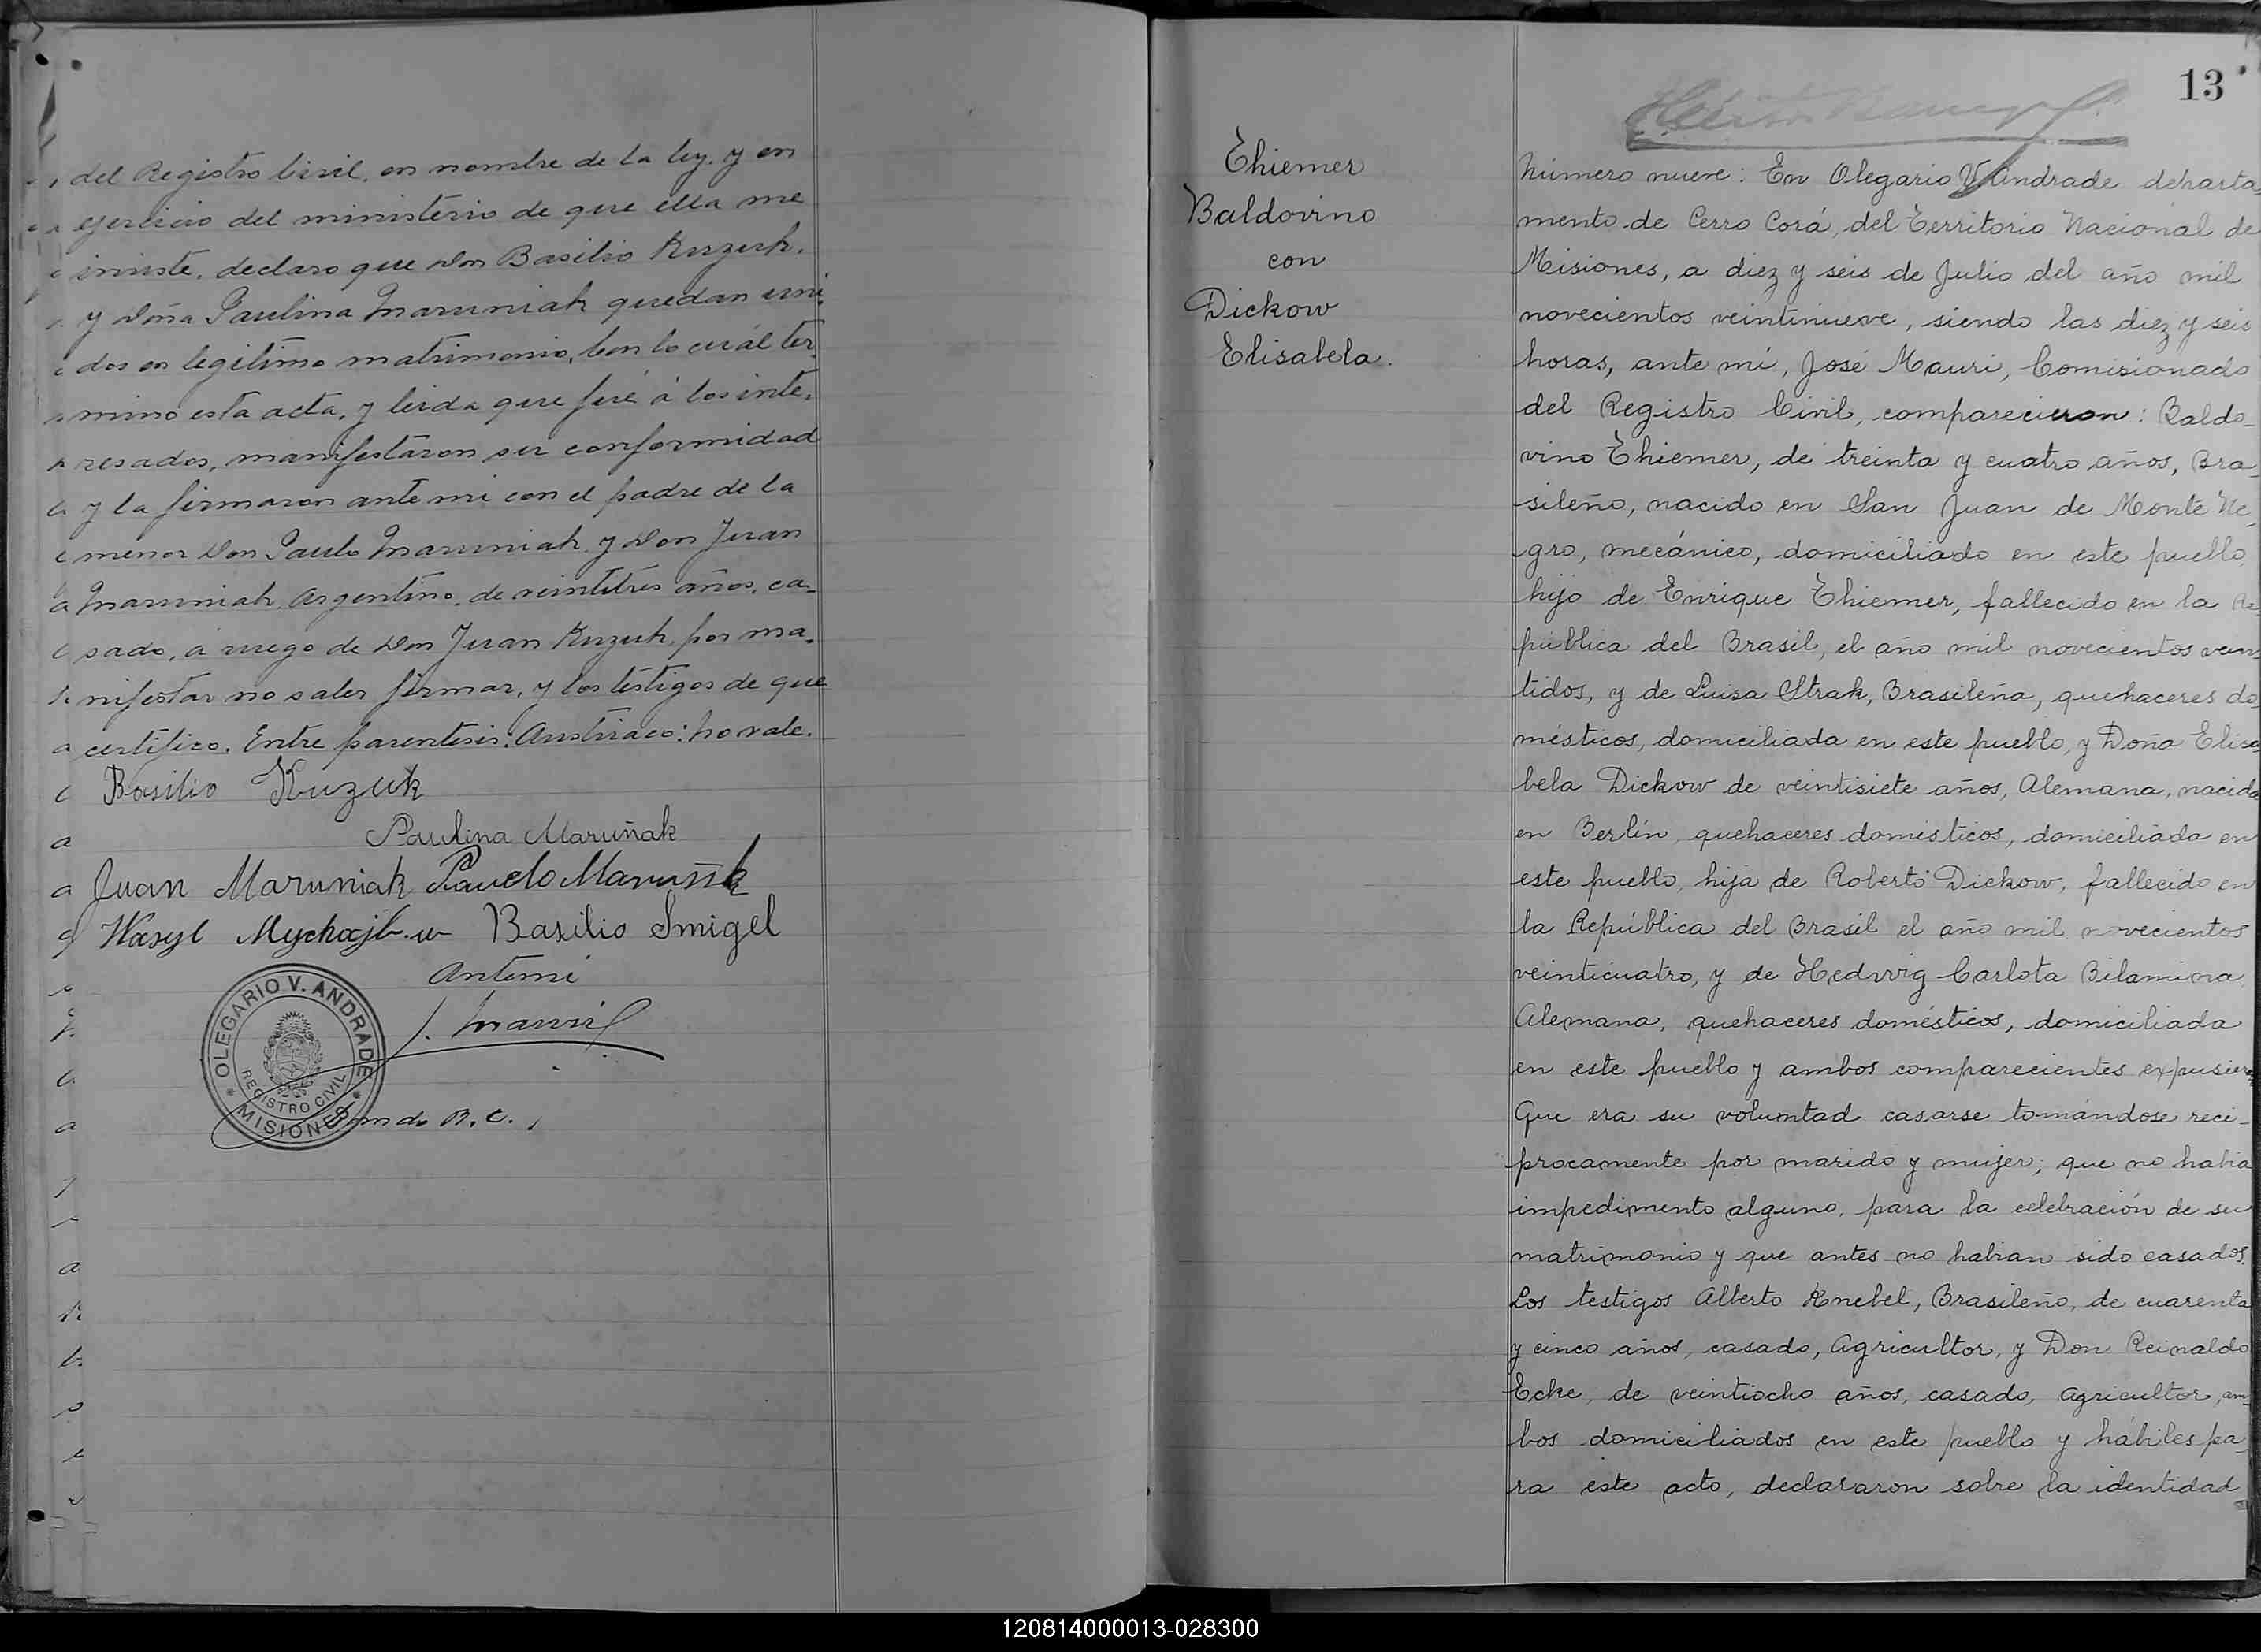 del Registro Civil, en nombre de la ley. y en
ejercicio del ministerio de que ella me
inviste, declaro que Don Basilio Kuzuk.
y Doña Paulina Maruniak quedan uni-
dos en legitimo matrimonio, Con lo cuál ter-
mino esta acta, y leida que fué á los inte-
resados, manifestaron su conformidad
y la firmaron ante mi con el padre de la
menor Don Paulo Maruniak y Don Juan
Maruniak, Argentino, de veintitres años, ca-
sado, a ruego de Don Juan Kuzuk, por ma-
nifestar no saber firmar, y los testigos de que
certifico. Entre parentesis: Austriaco: no vale.
Basilio Kuzuk
Paulina Maruñak
Juan Maruniak
Wasyl Basilio Smigel
Ante mi
J. Mauri
OLEGARIO V. ANDRADE
REGISTRO CIVIL
* MISIONES *
R. C.
13
Thiemer
Baldovino
con
Dickow
Elisabela.
Número nueve: En Olegario V. Andrade departa-
mento de Cerro Corá, del Territorio Nacional de
Misiones, a diez y seis de Julio del año mil
novecientos veintinueve, siendo las diez y seis
horas, ante mi, José Mauri, Comisionado
del Registro Civil, comparecieron: Baldo-
vino Thiemer, de treinta y cuatro años, Bra-
sileño, nacido en San Juan de Monte Ne-
gro, mecánico, domiciliado en este pueblo,
hijo de Enrique Thiemer, fallecido en la Re
pública del Brasil, el año mil novecientos vein
tidos, y de Luisa Strak, Brasileña, quehaceres do
mésticos, domiciliada en este pueblo, y Doña Elisa
bela Dickow de veintisiete años, Alemana, nacida
en Berlín, quehaceres domésticos, domiciliada en
este pueblo, hija de Roberto Dickow, fallecido en
la República del Brasil el año mil novecientos
veinticuatro, y de Hedwig Carlota Bilamiora,
Alemana, quehaceres domésticos, domiciliada
en este pueblo y ambos comparecientes expusieron
Que era su voluntad casarse tomándose recí-
procamente por marido y mujer; que no había
impedimento alguno, para la celebración de su
matrimonio y que antes no habian sido casados.
Los testigos Alberto Knebel, Brasileño, de cuarenta
y cinco años, casado, Agricultor, y Don Reinaldo
Ecke, de veintiocho años, casado, agricultor, am-
bos domiciliados en este pueblo y hábiles pa-
ra este acto, declararon sobre la identidad
120814000013-028300